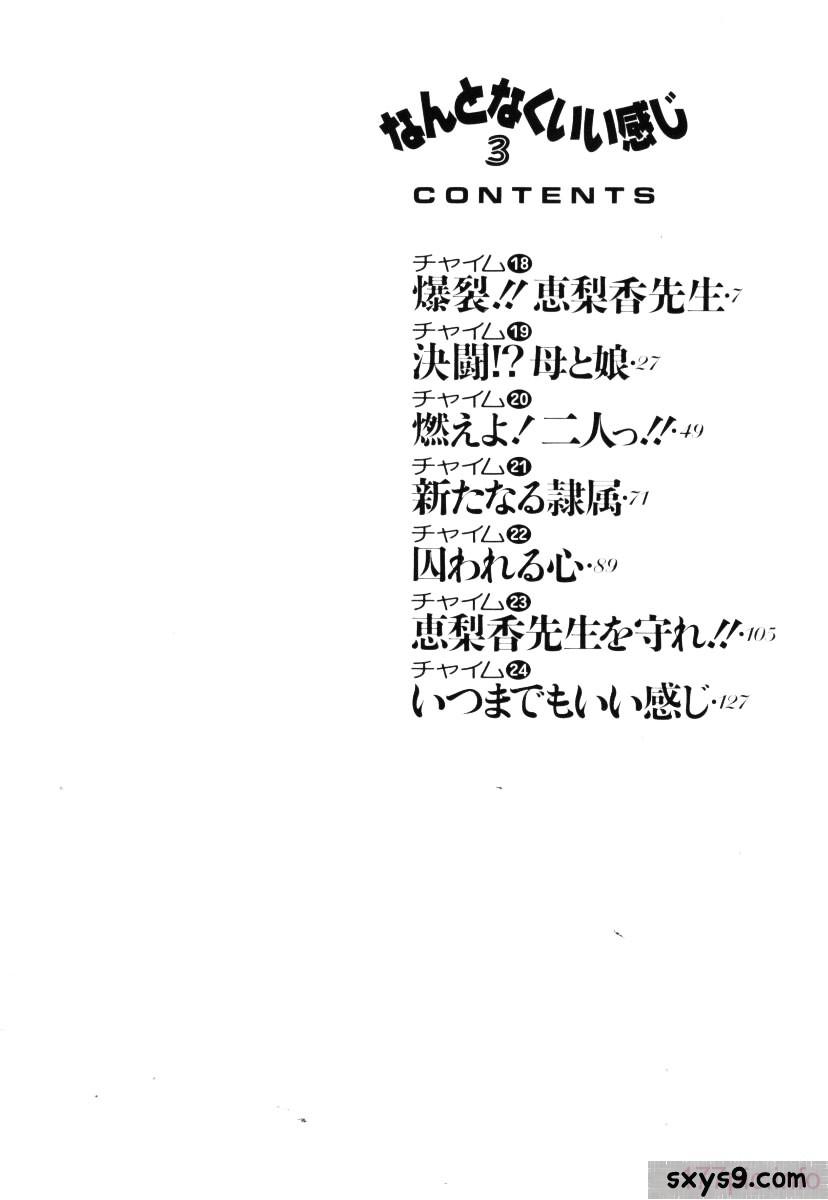 なんとなくいい感じ
3
CONTENTS
チャイム18
爆裂!! 恵梨香先生・7
チャイム19
決闘!? 母と娘・27
チャイム20
燃えよ! 二人っ!!・49
チャイム21
新たなる隷属・71
チャイム22
囚われる心・89
チャイム23
恵梨香先生を守れ!!・105
チャイム24
いつまでもいい感じ・127
sxys9.com